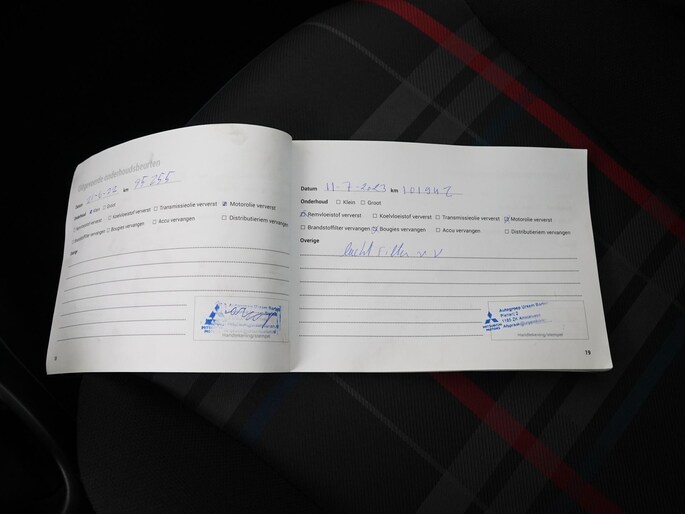 Uitgevoerde onderhoudsbeurten
Datum km 95255
Onderhoud ☒ Klein ☐ Groot
☐ Remvloeistof ververst ☐ Koelvloeistof ververst ☐ Transmissieolie ververst ☒ Motorolie ververst
☐ Brandstoffilter vervangen ☐ Bougies vervangen ☐ Accu vervangen ☐ Distributieriem vervangen
Overige
Handtekening/stempel
Datum 11-7-2023 km 101942
Onderhoud ☐ Klein ☐ Groot
☒ Remvloeistof ververst ☐ Koelvloeistof ververst ☐ Transmissieolie ververst ☒ Motorolie ververst
☐ Brandstoffilter vervangen ☒ Bougies vervangen ☐ Accu vervangen ☐ Distributieriem vervangen
Overige
lucht filter v v
Autogroep
MITSUBISHI MOTORS
Handtekening/stempel
19